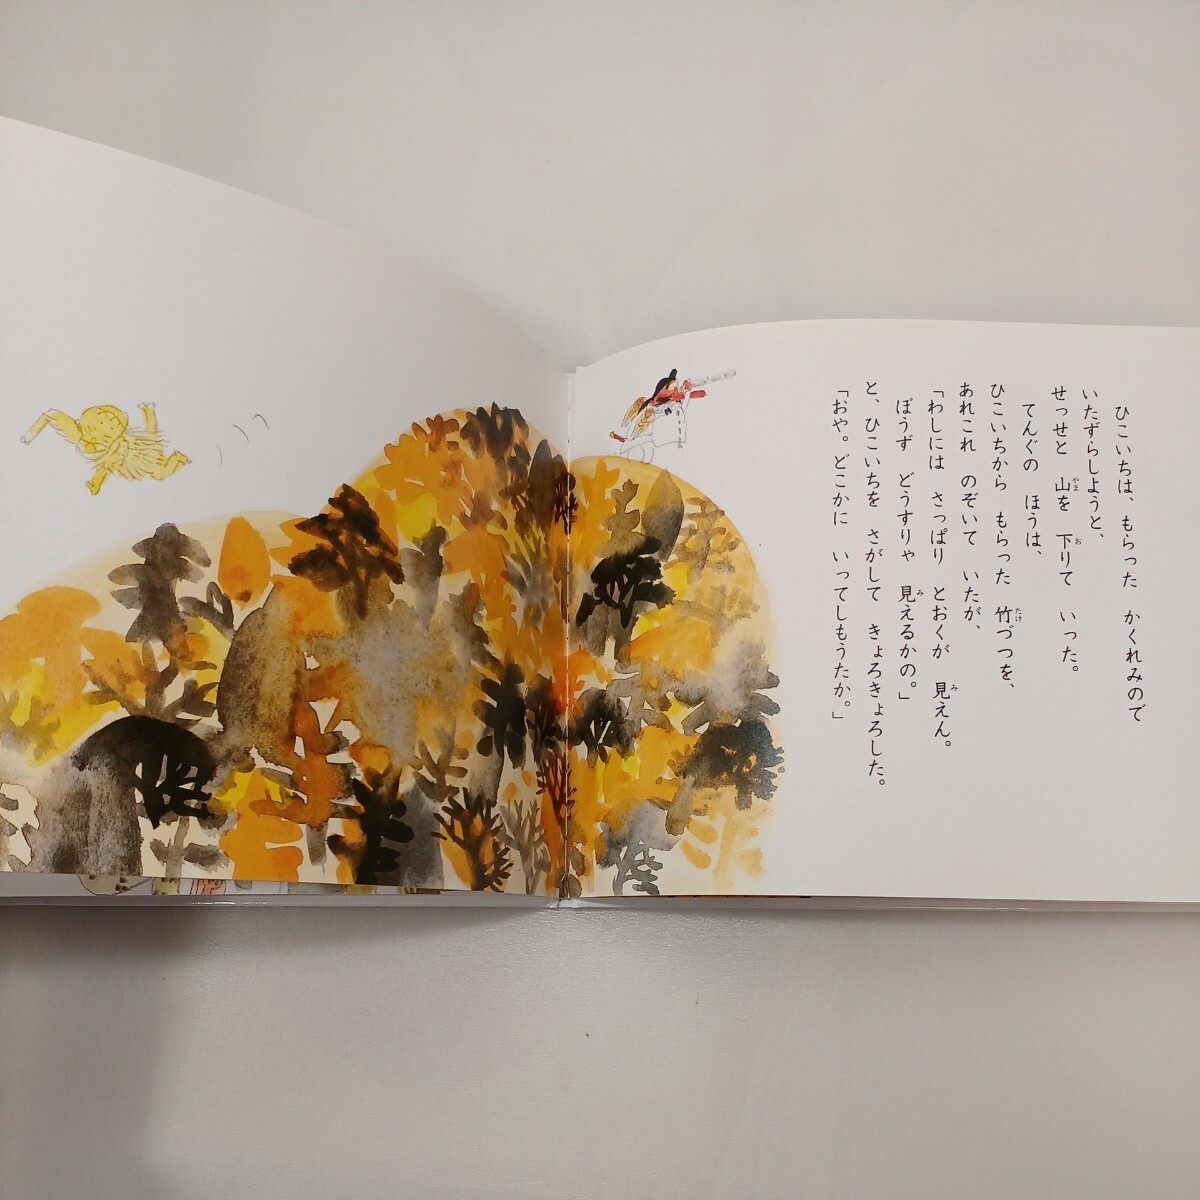 ひこいちは、もらった かくれみので
いたずらしようと、
せっせと 山を 下りて いった。
てんぐの ほうは、
ひこいちから もらった 竹づつを、
あれこれ のぞいて いたが、
「わしには さっぱり とおくが 見えん。
ぼうず どうすりゃ 見えるかの。」
と、ひこいちを さがして きょろきょろした。
「おや。どこかに いってしもうたか。」